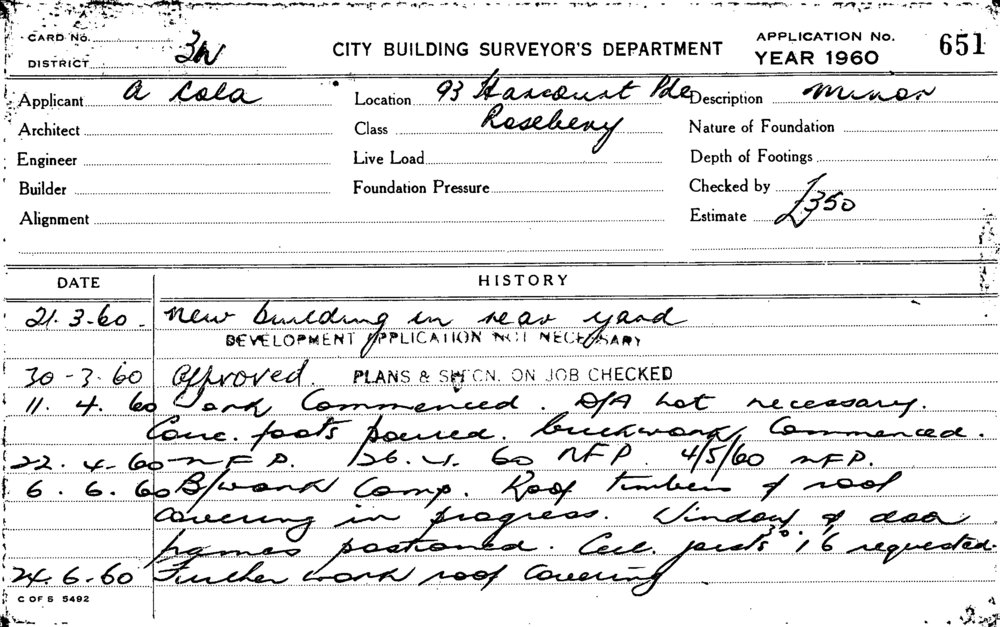 CARD No.
DISTRICT 3W
CITY BUILDING SURVEYOR'S DEPARTMENT
APPLICATION No. 651
YEAR 1960
Applicant A Cola
Location 93 Harcourt Pde
Description Minor
Architect
Class Rosebery
Nature of Foundation
Engineer
Live Load
Depth of Footings
Builder
Foundation Pressure
Checked by
Alignment
Estimate £350
DATE HISTORY
21.3.60. New building in rear yard
DEVELOPMENT APPLICATION NOT NECESSARY
30-3.60 Approved. PLANS & SPFCN. ON JOB CHECKED
11.4.60 Work Commenced. D/A not necessary.
Conc. foots poured. Brickwork Commenced.
22.4.60 NFP. 26.4.60 NFP. 4/5/60 NFP.
6.6.60 B/work Comp. Roof timbers & roof
covering in progress. Window & door
frames positioned. Ceil. joists 1'6 requested.
24.6.60 Further work roof covering
C OF S 5492